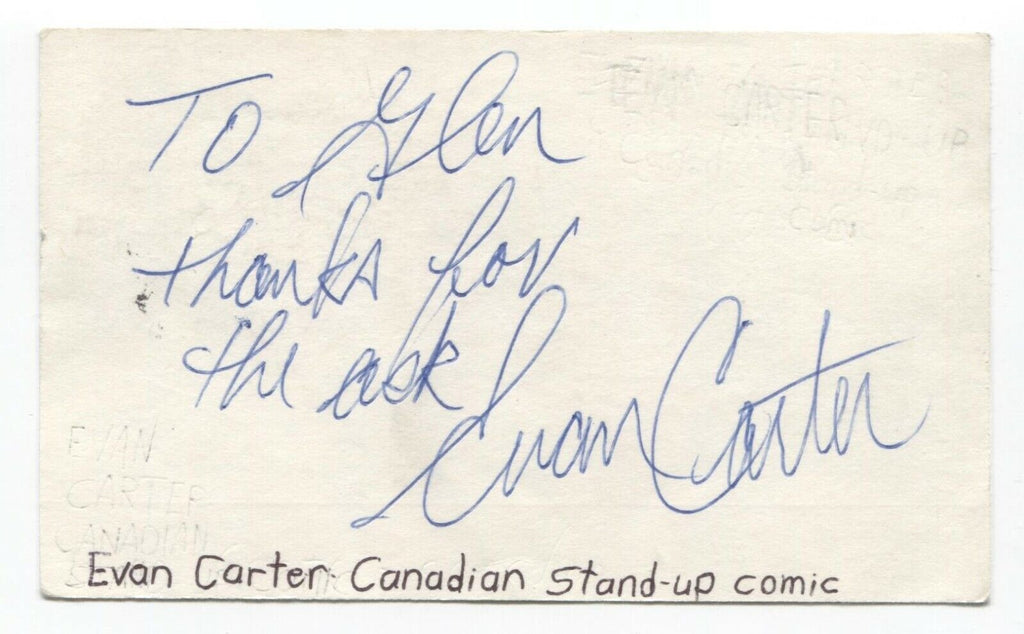 To Glen
thanks for
the ask
Evan Carter
EVAN
CARTER
CANADIAN
Evan Carter Canadian Stand-up comic